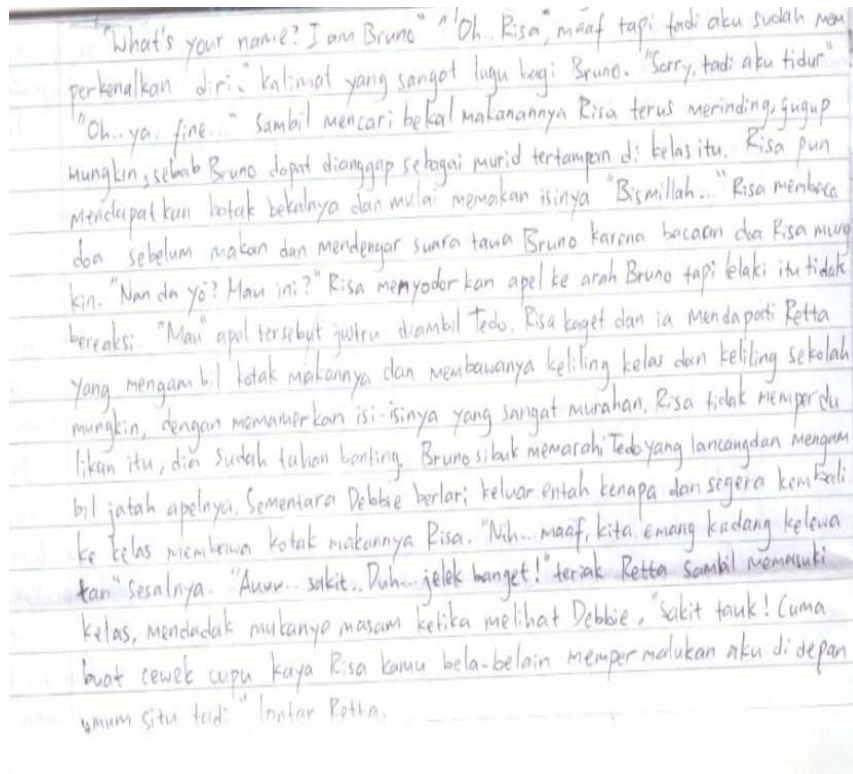 "What's your name? I am Bruno" "Oh.. Risa", maaf tapi tadi aku sudah mem
perkenalkan diri." kalimat yang sangat lugu bagi Bruno. "Sorry, tadi aku tidur"
"Oh.. ya. fine..." Sambil mencari bekal makanannya Risa terus merinding, gugup
mungkin, sebab Bruno dapat dianggap sebagai murid tertampan di kelas itu. Risa pun
mendapatkan kotak bekalnya dan mulai memakan isinya "Bismillah..." Risa membaca
doa sebelum makan dan mendengar suara tawa Bruno karena bacaan doa Risa mung
kin. "Nan da yo? Mau ini?" Risa menyodorkan apel ke arah Bruno tapi lelaki itu tidak
bereaksi. "Mau" apel tersebut justru diambil Tedo. Risa kaget dan ia mendapati Retta
yang mengambil kotak makannya dan membawanya keliling kelas dan keliling sekolah
mungkin, dengan memamerkan isi-isinya yang sangat murahan. Risa tidak memperdu
likan itu, dia sudah tahan banting. Bruno sibuk memarahi Tedo yang lancang dan mengam
bil jatah apelnya. Sementara Debbie berlari keluar entah kenapa dan segera kembali
ke kelas membawa kotak makannya Risa. "Nih... maaf, kita emang kadang kelewa
tan" Sesalnya. "Auw.. sakit.. Duh... jelek banget!" teriak Retta sambil memasuki
kelas, mendadak mukanya masam ketika melihat Debbie, "Sakit tauk! Cuma
buat cewek cupu kaya Risa kamu bela-belain mempermalukan aku di depan
umum situ tadi" lontar Retta.